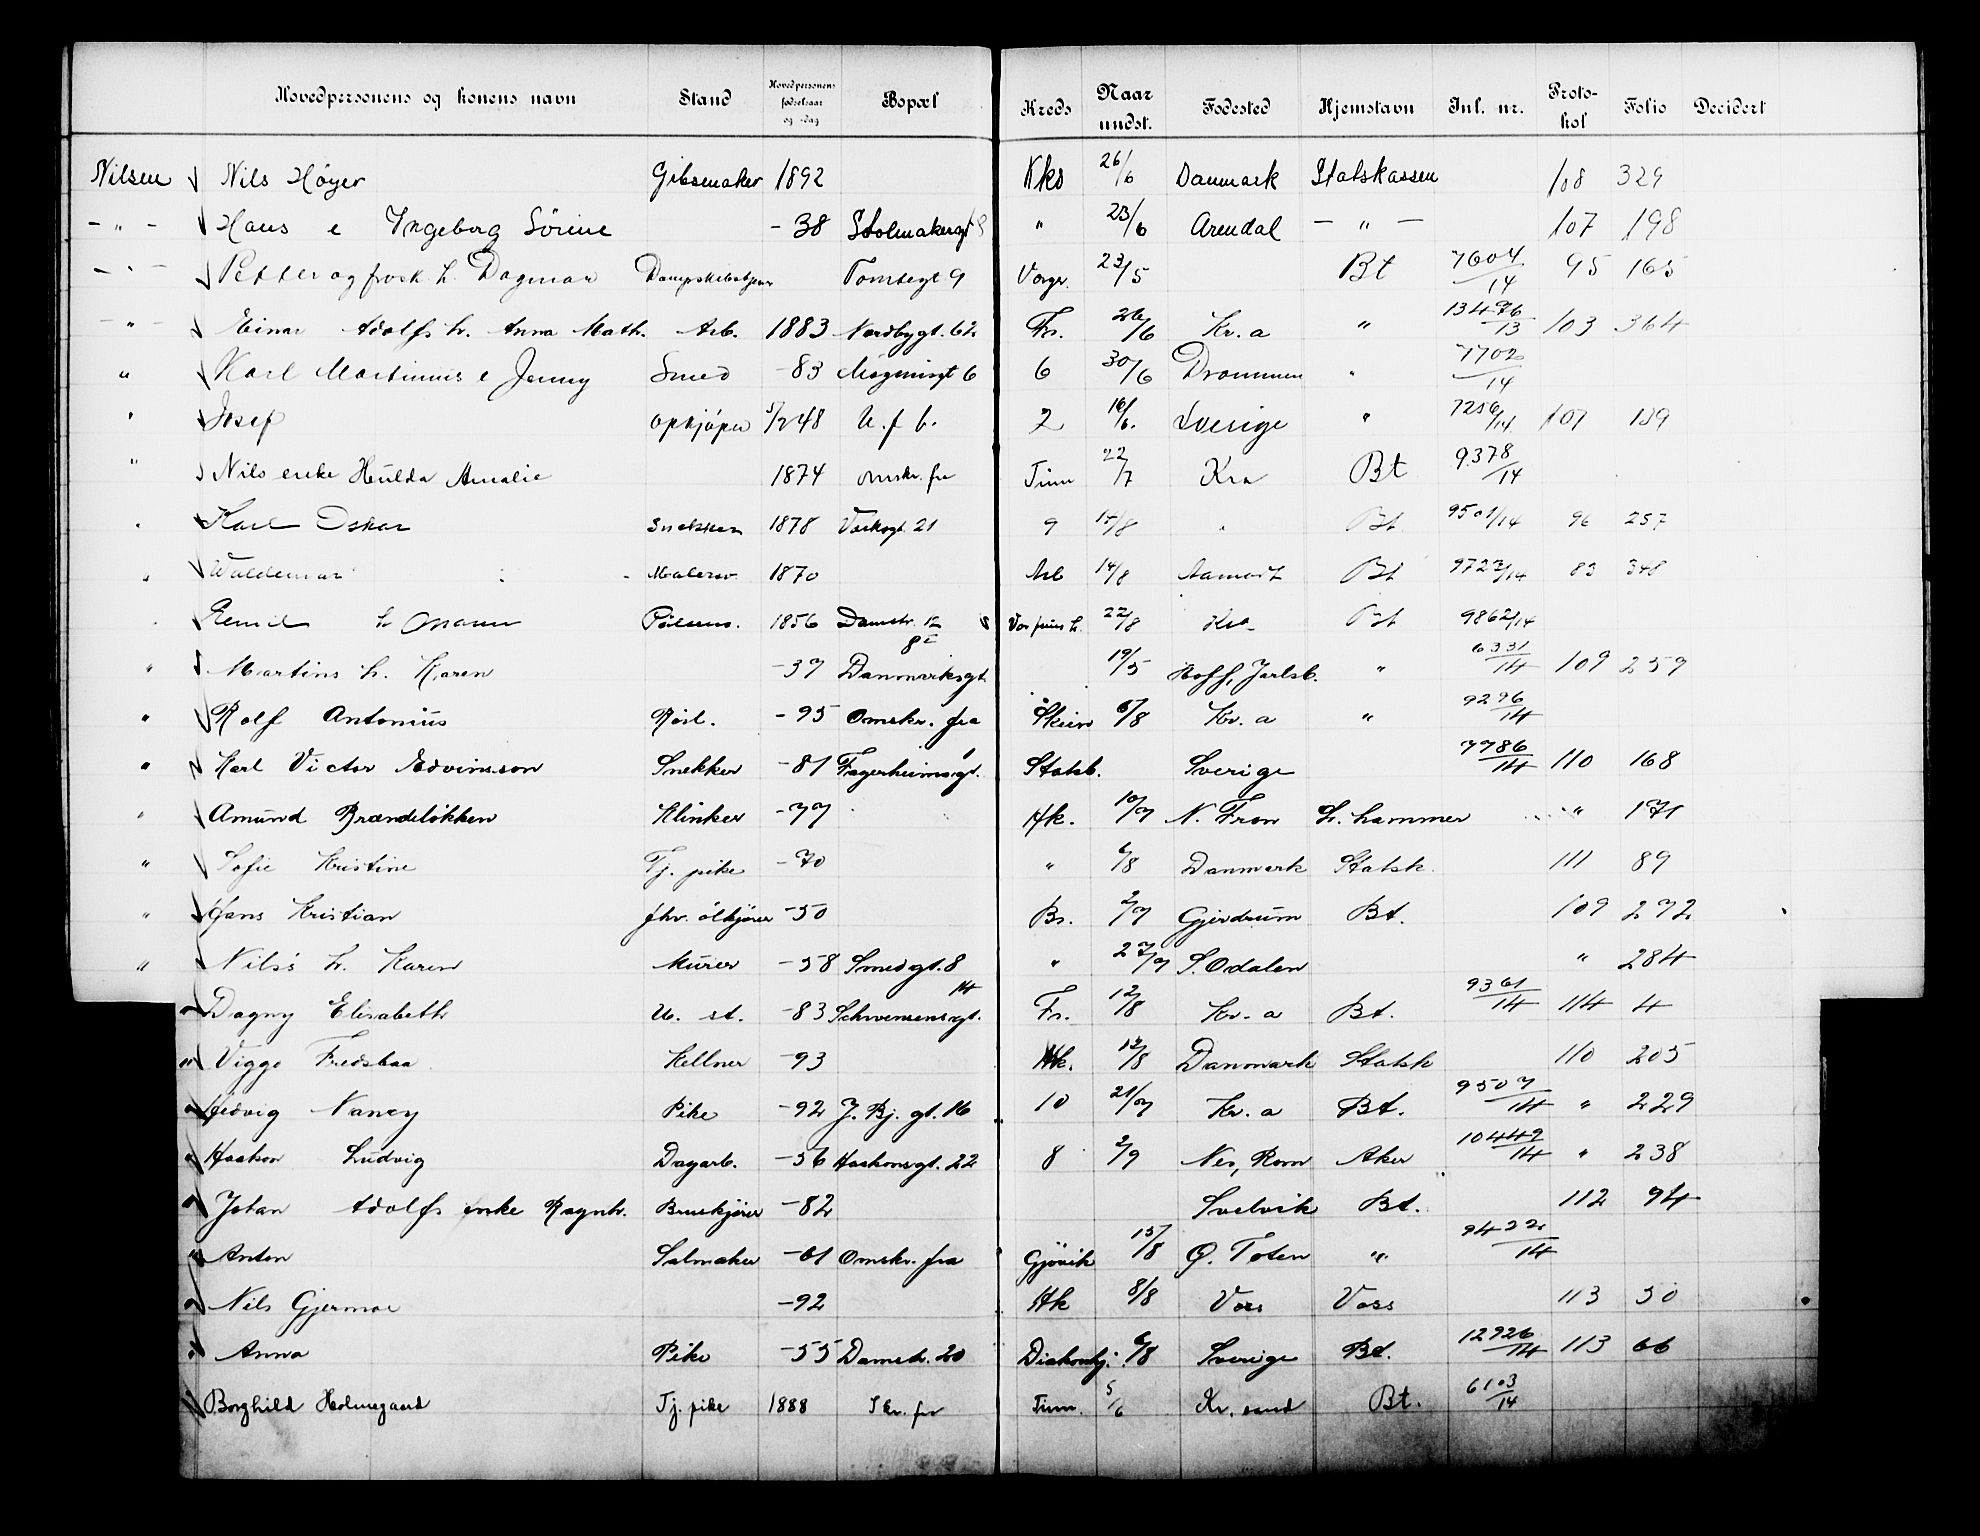 Hovedpersonens og konens navn Stand Hovedpersonens fødselsaar og -dag Bopæl Kreds Naar undst. Fødested Hjemstavn Inl. nr. Protokol Folio Decidert
Nilsen Nils Høyer Gibsmaker 1892 Kks 26/6 Danmark Statskassen 108 329
- " - Hans e Ingeborg Sørine - 38 Stolmakergt " 23/6 Arendal - " - 107 198
- " - Petter og frask. h. Dagmar Tomtegt 9 Vaager. 23/5 Bt 7604/14 95 165
- " - Einar Adolfs h. Anna Math. Arb. 1883 Nordbygt. 62 Fr. 26/6 Kr.a " 13476/13 103 364
" Karl Martinius e Jenny Smed - 83 Mogensgt 6 6 30/6 Drammen " 7702/14
" Josef opkjøper 5/2 48 U. f b. 2 16/6. Sverige " 7256/14 107 189
" Nils enke Hulda Amalie 1874 omskr. fra Tinn 22/7 Kra Bt 9378/14
" Karl Oskar Snekker 1878 Vaskegt. 21 9 15/8 " Bt 9501/14 96 257
" Valdemar Malersv. 1870 Arb 14/8 Aamodt Bt 9723/14 83 348
" Emil h Pølsem. 1856 Damstr. 12 22/8 Kra Bt 9862/14
" Martins h. Karen - 37 Danmarksgt. 8 I 19/5 Hoff, Jarlsb. " 6331/14 109 259
" Rolf Antonius Rørl. - 95 Omskr. fra Skien 6/8 Kr.a " 9296/14
" Karl Victor Edvinsson Snekker - 81 Fagerheimsgt. 1 Statsb. Sverige 7786/14 110 168
" Amund Brændeløkken Klinker - 77 Hk. 10/7 N. Fron L.hammer " 171
" Sofie Kristine Tj. pike - 70 " 6/8 Danmark Statsk. 111 89
" Hans Kristian fhv. ølkjører - 50 Br. 2/7 Gjerdrum Bt. 109 292
" Nils's h. Karen Murer - 58 Smedgt. 8 " 27/7 S. Odalen " 284
" Dagny Elisabeth U. st. - 83 Schwensensgt. 14 Fr. 12/8 Kr.a Bt. 9361/14 114 4
" Viggo Fredsbaa Kellner - 93 Hk. 12/8 Danmark Statsk 110 205
" Hedvig Nancy Pike - 92 J. Bj. gt. 16 10 21/7 Kr.a Bt. 9507/14 " 229
" Haakon Ludvig Dagarb. - 56 Haakonsgt. 22 8 2/9 Nes, Rom Aker 10449/14 " 238
" Johan Adolfs enke Ragnh. Bruskjører - 82 Svelvik Bt. 112 94
" Anton Salmaker - 61 Omskr. fra Gjøvik 15/8 Ø. Toten " 9422/14
" Nils Gjermoe - 92 Hk 8/8 Voss Voss 113 50
" Anna Pike - 55 Damstr. 20 Diakonhj. 6/8 Sverige Bt. 12926/14 113 66
" Borghild Holmegaard Tj. pike 1888 Tinn. 5/6 Kr. sand Bt. 6103/14